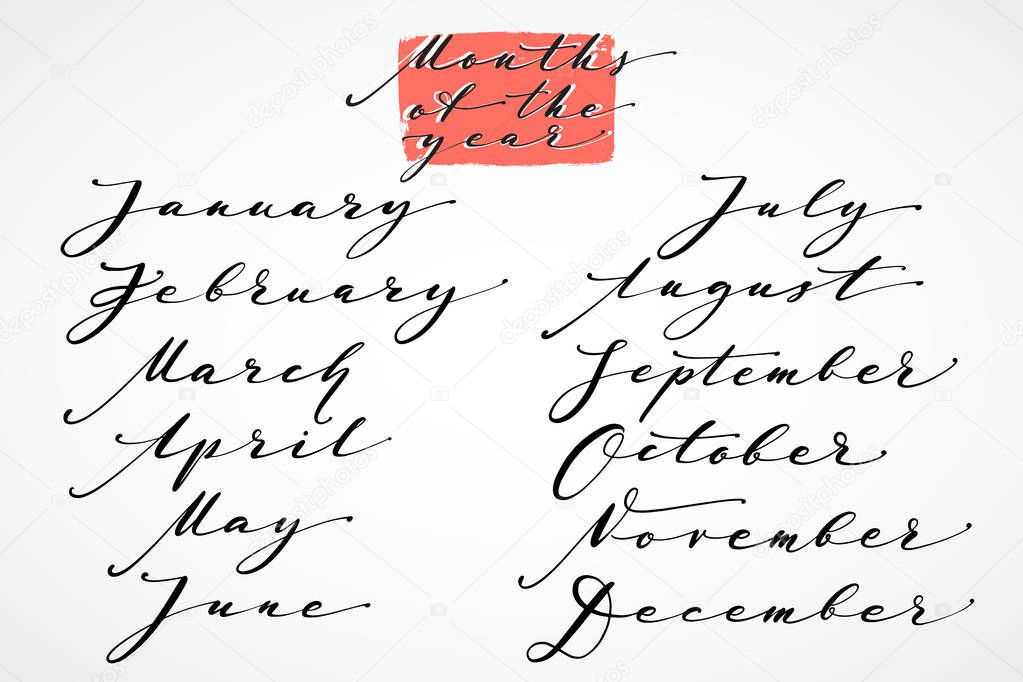 Months
of the
year
January
February
March
April
May
June
July
August
September
October
November
December
depositphotos